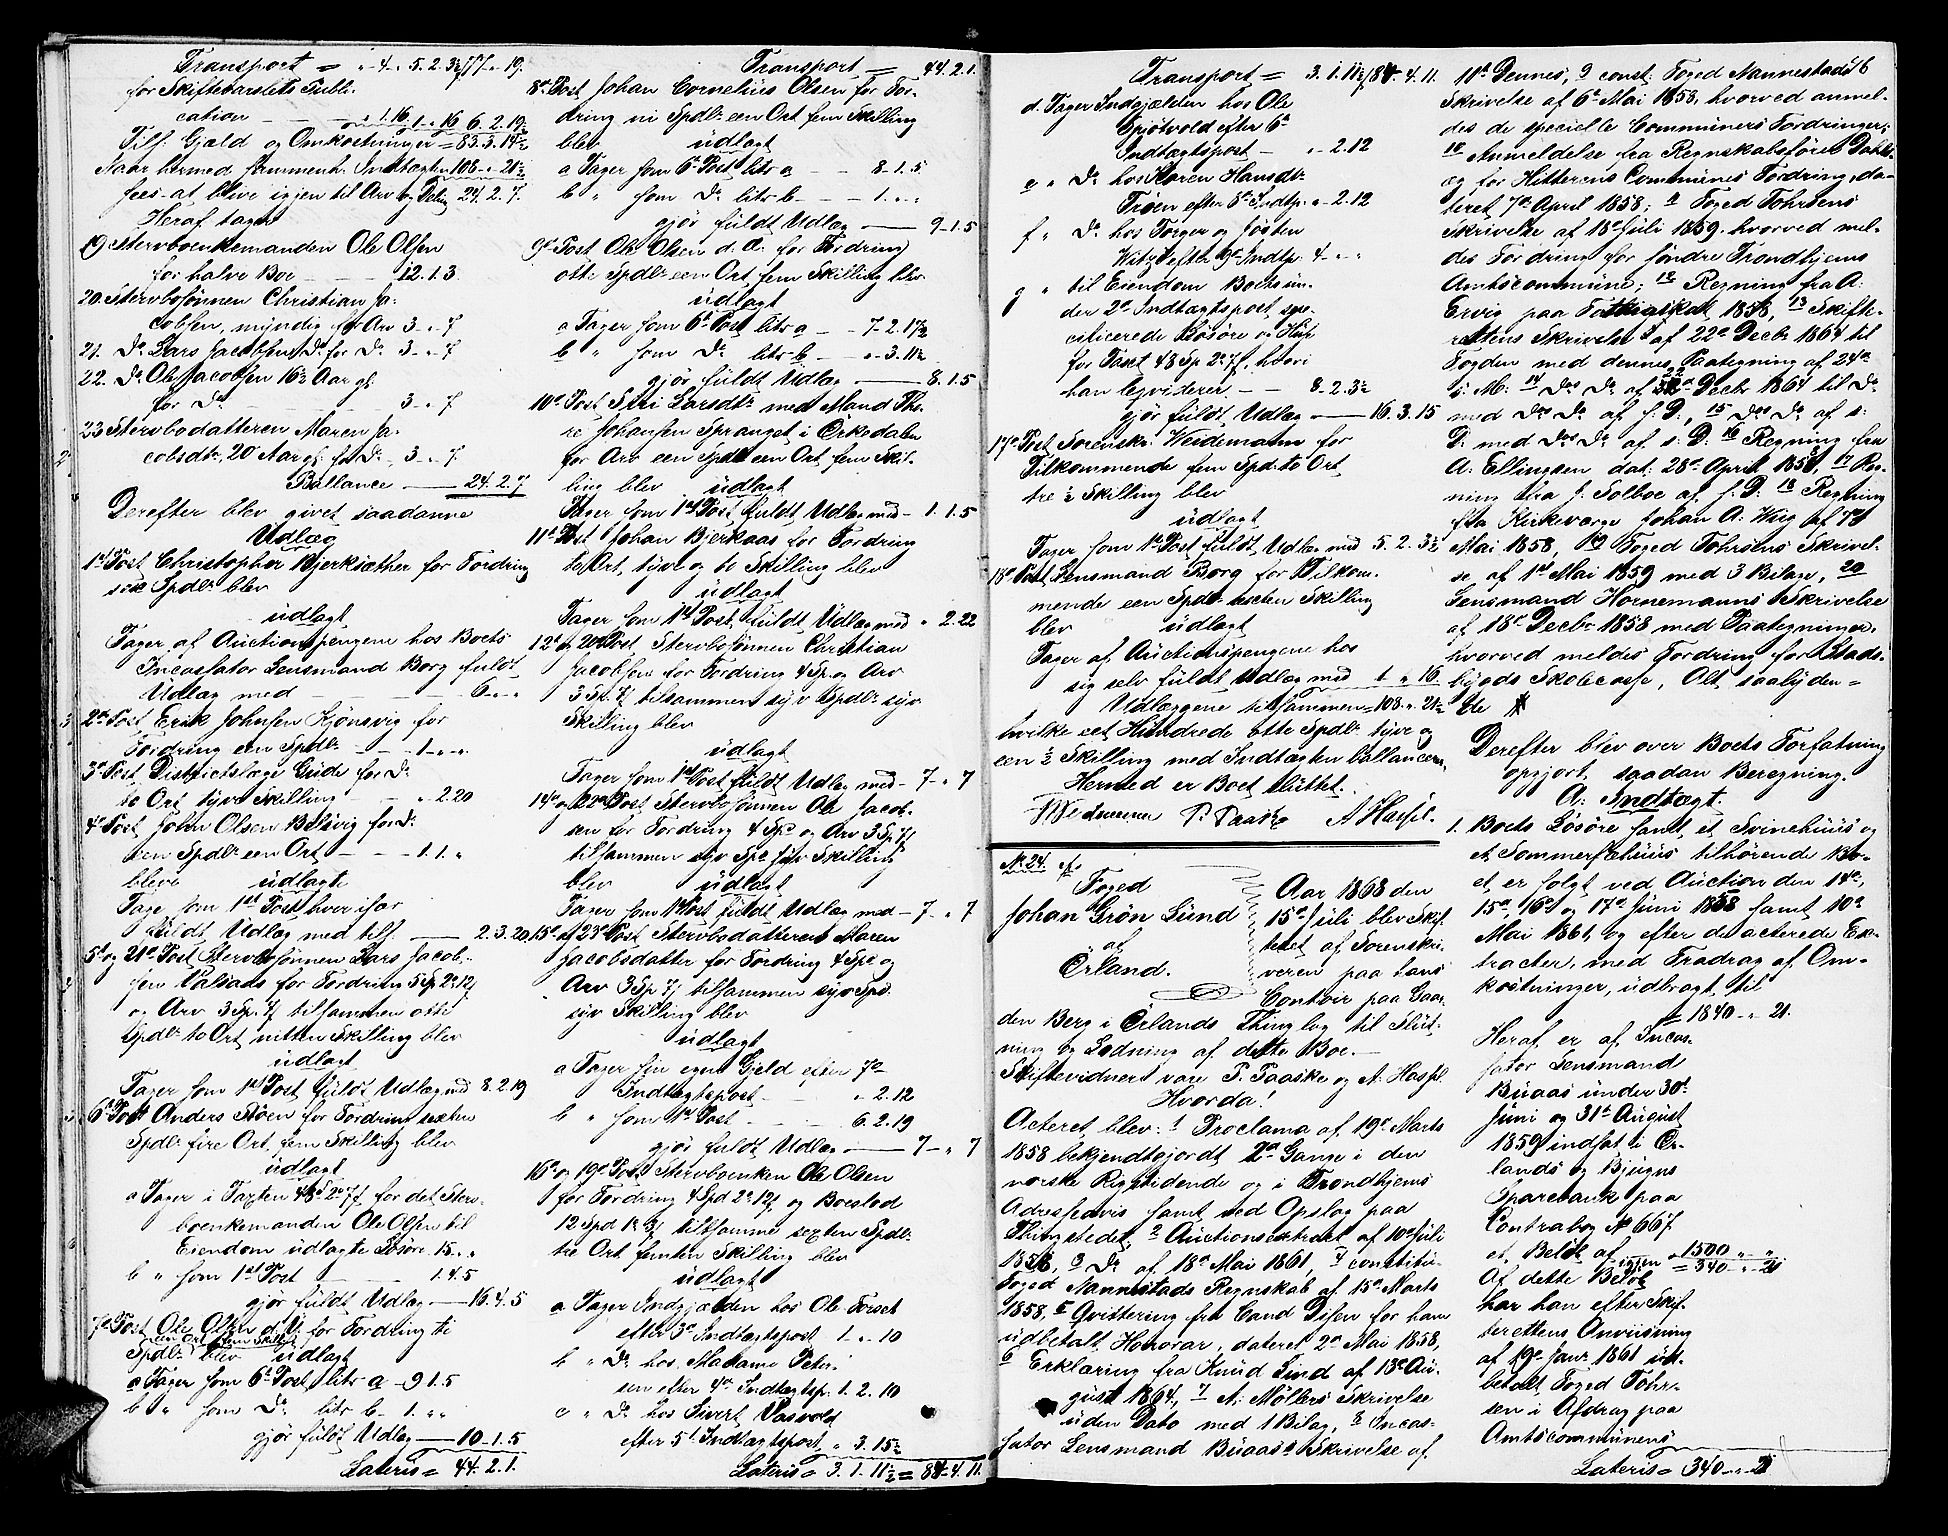 Transport = „-4-„ 5.2.3½ 77-„-19.
for Skiftevarslets Publi-
cation - - - „ 1.16. „ 1 „ 16 6.2.19½
Tils: Gjæld og Omkostninger = 83.3.14½
Naar hermed sammenh. Indtægten 108-„-21½
sees at blive igjen til Arv og Deling 24.2.7.
Heraf tager
19 Stervboenkemanden Ole Olsen
for halve Boe - - - 12.1.3
20. Stervbosønnen Christian Ja-
cobsen, myndig for Arv 3-„-7
21. Do Lars Jacobsen Do for Do 3-„-7
22. Do Ole Jacobsen 16½ Aar gl.
for Do - - - 3-„-7
23 Stervbodatteren Maren Ja-
cobsdtr, 20 Aar gl. for Do 3-„-7.
Ballance — 24.2.7
Derefter blev givet saadanne
Udlæg
1st Post Christopher Bjerksæther for Fordring
sex Spdlr blev
udlagt
Tager af Auctionspengene hos Boets
Incassator Lensmand Borg fuldt
Udlæg med - - - 6„-„
2den Post Erik Johnsen Kjønsvig for
Fordring een Spdlr - - - 1-„-„
3de Post Districtslæge Gude for Do
to Ort tyve Skilling - - „ 2.20
4de Post John Olsen Belsvig for Do
een Spdlr een Ort - - - 1.1.„
bleve udlagte
Tage som 1st Post hver især
fuldt Udlæg med tils: — 2.3.20
5te og 21de Post Stervbosønnen Lars Jacob-
sen Valsads for Fordring 5 Sp 2o 12 ʃ
og Arv 3 Sp. 7 ʃ tilsammen otte
Spdlr to Ort nitten Skilling blev
udlagt
Tager som 1st Post fuldt Udlæg med 8.2.19
6te Post Anders Moen for Fordring sexten
Spdlr fire Ort fem Skilling blev
udlagt
a Tager i Taxten 48d 2o 7 ʃ for det Sterv-
boenkemanden Ole Olsen til
Eiendom udlagte Løsøre 15„-„
b „ som 1st Post - - 1.4.5
gjør fuldt Udlæg — 16.4.5
7de Post Ole Olsen d. Y. for Fordring ti
Spdlr een Ort fem Skilling blev udlagt
a Tager som 6te Post litr a — 9.1.5
b „ som Do litr b — 1.„„
gjør fuldt Udlæg — 10-1.5
Lateris = 44.2.1.
Transport = 44.2.1.
8de Post Johan Cornelius Olsen for For-
dring ni Spdlr een Ort fem Skilling
blev udlagt
a Tager som 6te Post litr a - - 8-1.5
b „ som Do litr b - - 1.„„
gjør fuldt Udlæg — 9-1.5
9de Post Ole Olsen d. Æ. for Fordring
otte Spdlr een Ort fem Skilling blev
udlagt
a Tager som 6te Post litr a - - 7-2.17½
b „ som Do litr b - - „-3.11½
gjør fuldt Udlæg — 8.1.5
10de Post Siri Larsdtr med Mand The-
re Johansen Spranget i Orkedalen
for Arv een Spdlr een Ort fem Skil-
ling blev udlagt
Tager som 1st Post fuldt Udlæg med - 1.1.5
11te Post Johan Bjerkaas for Fordring
to Ort, tyve og to Skilling blev
udlagt
Tager som 1st Post fuldt Udlæg med „ 2.22
12te og 20de Post Stervbosønnen Christian
Jacobsen for Fordring 4 Sp. og Arv
3 Sp. 7 ʃ tilsammen syv Spdlr syv
Skilling blev
udlagt
Tager som 1st Post fuldt Udlæg med - 7-„7
14de og 22de Post Stervbosønnen Ole Jacob-
sen for Fordring 4 Spd og Arv 3 Sp 7 ʃ
tilsammen syv Spd syv Skilling
blev udlagt
Tager som 1st Post fuldt Udlæg med - 7-„7
15de og 23de Post Stervbodatteren Maren
Jacobsdatter for Fordring 4 Spd og
Arv 3 Sp 7 ʃ tilsammen syv Spd.
syv Skilling blev
udlagt
a Tager sin egen Gjeld efter 7de
Indtægtspost - - - „ 2.12
b „ som 1st Post - - - 6.2.19
gjør fuldt Udlæg — 7-„7
16de og 19de Post Stervboenken Ole Olsen
for Fordring 4 Spd 2o 12 ʃ og Boeslod
12 Spd 1o 3 ʃ tilsammen sexten Spdlr
tre Ort femten Skilling blev
udlagt
a Tager Indgjælden hos Ole Forset
efter 3de Indtægtspost 1-„-10
b „ Do hos Madame Peter-
sen efter 4de Indtægtsp. 1.2.10
c „ Do hos Sivert Vasvold
efter 5te Indtægtspost „ 3.15½
Lateris = 3.1.11½ = 84-4.11.
Transport = 3.1.11½ 84-4.11.
d. Tager Indgjælden hos Ole
Spjøtvold efter 6te
Indtægtspost - „-2.12
e „ Do hos Karen Hansdtr
Trøen efter 8de Indtp. „-2.12
f „ Do hos Torger og Josten
Witz efter 9de Indtp. 4-„„
g „ til Eiendom Boets un-
der 2de Indtægtspost spe-
cificerede Løsøre og Huse
for Taxt 48 Sp 2o 7 ʃ, hvori
han leqviderer - - 8-2.3½
gjør fuldt Udlæg — 16.3.15
17de Post Sorenskr. Weidemann for
Tilkommende fem Spd: to Ort
tre ½ Skilling blev
udlagt
Tager som 1st Post fuldt Udlæg med 5.2.3½
18de Post Lensmand Borg for Tilkom-
mende een Spdlr sexten Skilling
blev udlagt
Tager af Auctionspengene hos
sig selv fuldt Udlæg med 1„16.
Udlæggene tilsammen = 108.„ 21½
hvilke eet Hundrede otte Spdlr tyve og
een ½ Skilling med Indtægten ballancere.
Hermed er Boet sluttet.
Wedemann P. Paaske A Hassel.
No 24. af
Foged
Johan Grön Lünd
af
Örland.
Aar 1868 den
15de Juli blev Skif-
teret af Sorenskri-
veren paa hans
Contoir paa Gaar-
den Berg i Örlands Thinglag til Slut-
ning og Lodning af dette Boe. —
Skiftevidner vare P. Paaske og A. Hassel.
Hvorda!
Acteret blev: 1 Proclama af 19de Marts
1858 bekjendtgjordt 2de Gange i den
norske Rigstidende og i Trondhjems
Adresseavis samt ved Opslag paa
Thingstedet, 2 Auctionsextract af 10de Juli
1858, 3 Do af 18de Mai 1861, 4 constitu-
Foged Nannestads Regnskab af 15de Marts
1858, 5 Qvittering fra Cand Disen for ham
udbetalt Honorar, dateret 2de Mai 1858,
6 Erklæring fra Knud Lind af 13de Au-
gust 1864, 7 A. Möllers Skrivelse
uden Dato med 1 Bilag, 8 Incas-
sator Lensmand Buaas's Skrivelse af
11te Dennes, 9 const. Foged Nannestads 16
Skrivelse af 6te Mai 1858, hvorved anmel-
des de specielle Communers Fordringer;
10 Anmeldelse fra Regnskabsfører Dahl
og for Hitterens Communes Fordring, da-
teret 7de April 1858; 11 Foged Fohrsens
Skrivelse af 18de Juli 1859. hvorved mel-
des Fordring for søndre Trondhjems
Amtscommune; 12 Regning fra A:
Ervig paa Fattigskat 1858, 13 Skifte-
rettens Skrivelse af 22de Decbr 1864 til
Fogden med dennes Paategning af 24de
s: M: 14 Des Do af 22de Decbr 1864 til Do
med Des Do af s. D:, 15 Des Do af s:
D: med Des Do af s: D: 16 Regning fra
A: Ellingsen dat: 28de April 1858, 17 Reg-
ning fra J. Solboe af s. D: 18 Regning
fra Kirkeværge Johan A: Wiig af 7de
Mai 1858, 19 Foged Fohrsens Skrivel-
se af 1st Mai 1859 med 3 Bilage, 20
Lensmand Hornemanns Skrivelse
af 18de Decbr 1858 med Paategninger,
hvorved meldes Fordring for Stads-
bygds Skolecasse, Alt saalyden-
de #
Derefter blev over Boets Forfatning
opgjort saadan Beregning.
A: Indtægt.
1. Boets Løsøre samt et Svinehuus og
et Sommerfæhuus tilhørende Bo-
et er solgt ved Auction den 14de,
15de, 16de og 17de Juni 1858 samt 10de
Mai 1861, og efter de acterede Ex-
tracter, med Fradrag af Om-
kostninger, udbragt til
= 1840-„ 21.
Heraf er af Incas-
sator Lensmand
Buaas under 30te
Juni og 31te August
1859 indsat i Ør-
lands og Bjugns
Sparebank paa
Contrabog No 667
et Beløb af - - „ 1500 „ „
igjen = 340 „ 21
Af dette Beløb
har han efter Skif-
terettens Anviisning
af 19de Janr 1861 ud-
betalt Foged Fohr-
sen i Afdrag paa
Amtscommunens
Lateris = 340-„-21